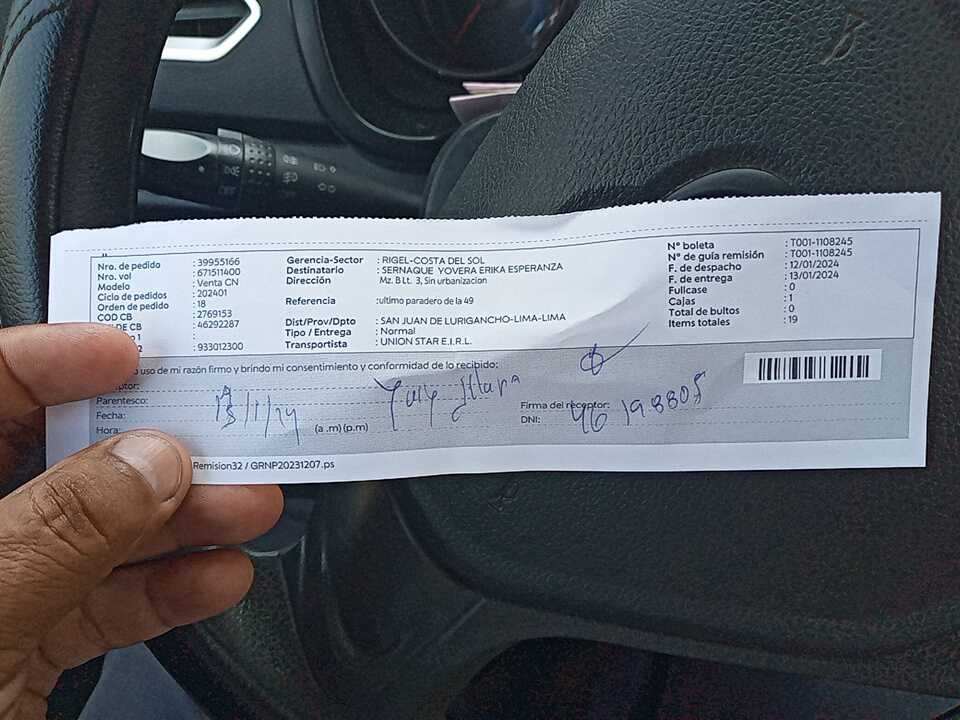 Nro. de pedido : 39955166
Nro. vol : 671511400
Modelo : Venta CN
Ciclo de pedidos : 202401
Orden de pedido : 18
COD CB : 2769153
DE CB : 46292287
2 : 933012300
Gerencia-Sector : RIGEL-COSTA DEL SOL
Destinatario : SERNAQUE YOVERA ERIKA ESPERANZA
Dirección Mz. B Lt. 3, Sin urbanizacion
Referencia :ultimo paradero de la 49
Dist/Prov/Dpto : SAN JUAN DE LURIGANCHO-LIMA-LIMA
Tipo / Entrega : Normal
Transportista : UNION STAR E.I.R.L.
N° boleta : T001-1108245
N° de guía remisión : T001-1108245
F. de despacho : 12/01/2024
F. de entrega : 13/01/2024
Fullcase : 0
Cajas : 1
Total de bultos : 0
Items totales : 19
uso de mi razón firmo y brindo mi consentimiento y conformidad de lo recibido:
ptor:
Parentesco:
Fecha: 13/1/24
Hora: (a .m) (p.m)
Firma del receptor:
DNI:
Remision32 / GRNP20231207.ps
OFF